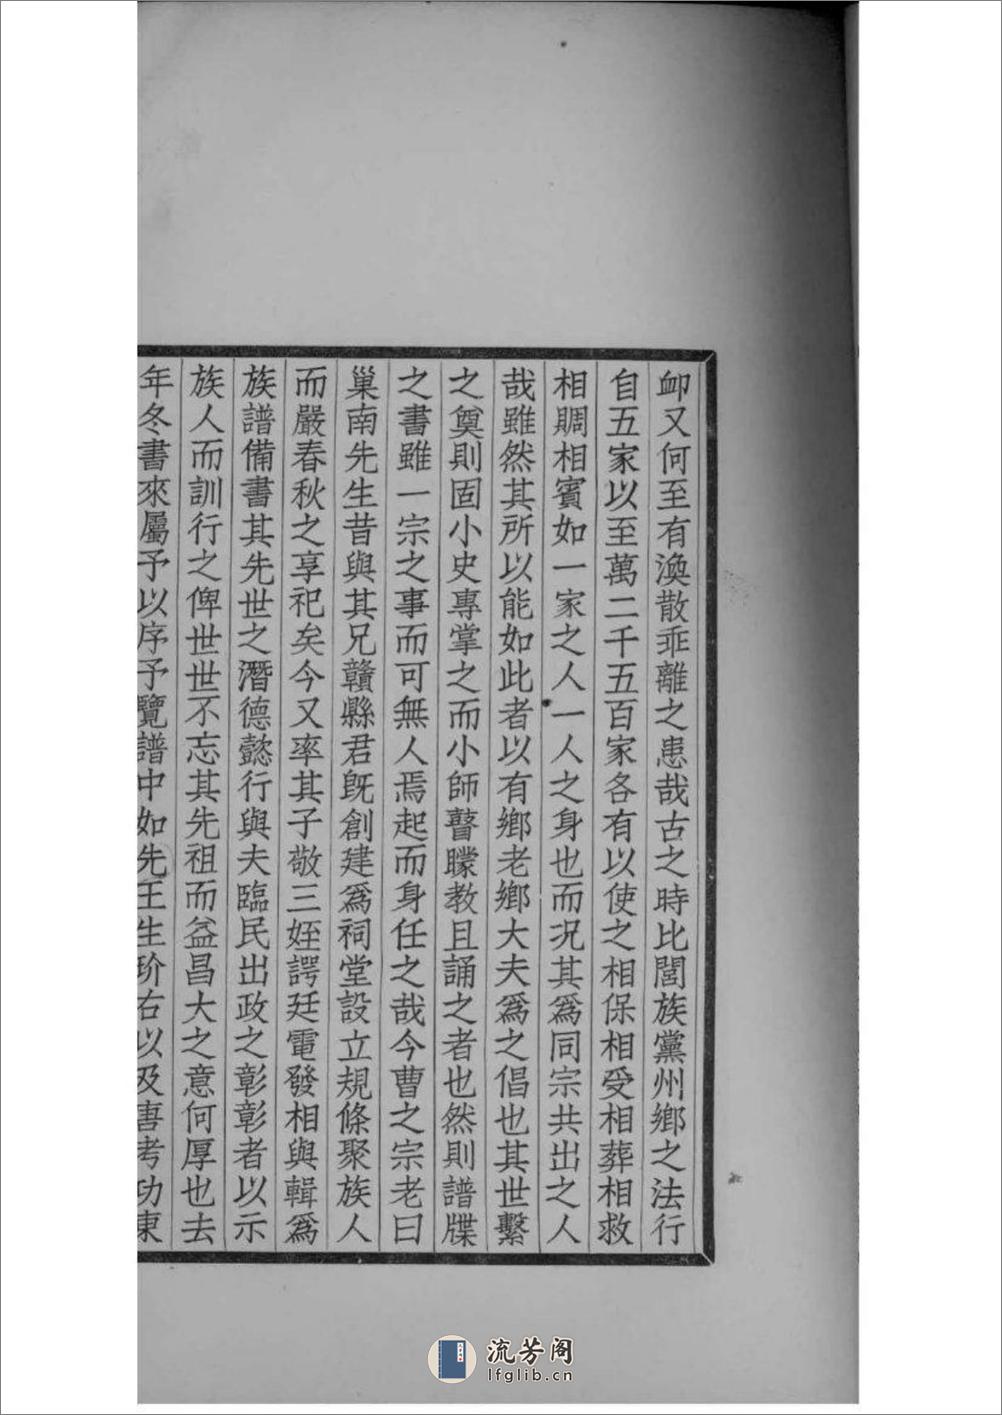 卹又何至有渙散乖離之患哉古之時比閭族黨州鄉之法行
自五家以至萬二千五百家各有以使之相保相受相葬相救
相賙相賓如一家之人一人之身也而況其爲同宗共出之人
哉雖然其所以能如此者以有鄉老鄉大夫爲之倡也其世繫
之奠則固小史專掌之而小師瞽矇教且誦之者也然則譜牒
之書雖一宗之事而可無人焉起而身任之哉今曹之宗老曰
巢南先生昔與其兄贛縣君旣創建爲祠堂設立規條聚族人
而嚴春秋之享祀矣今又率其子敬三姪諤廷電發相與輯爲
族譜備書其先世之潛德懿行與夫臨民出政之彰彰者以示
族人而訓行之俾世世不忘其先祖而益昌大之意何厚也去
年冬書來屬予以序予覽譜中如先王生玠右以及唐考功東
流芳阁
lfglib.cn